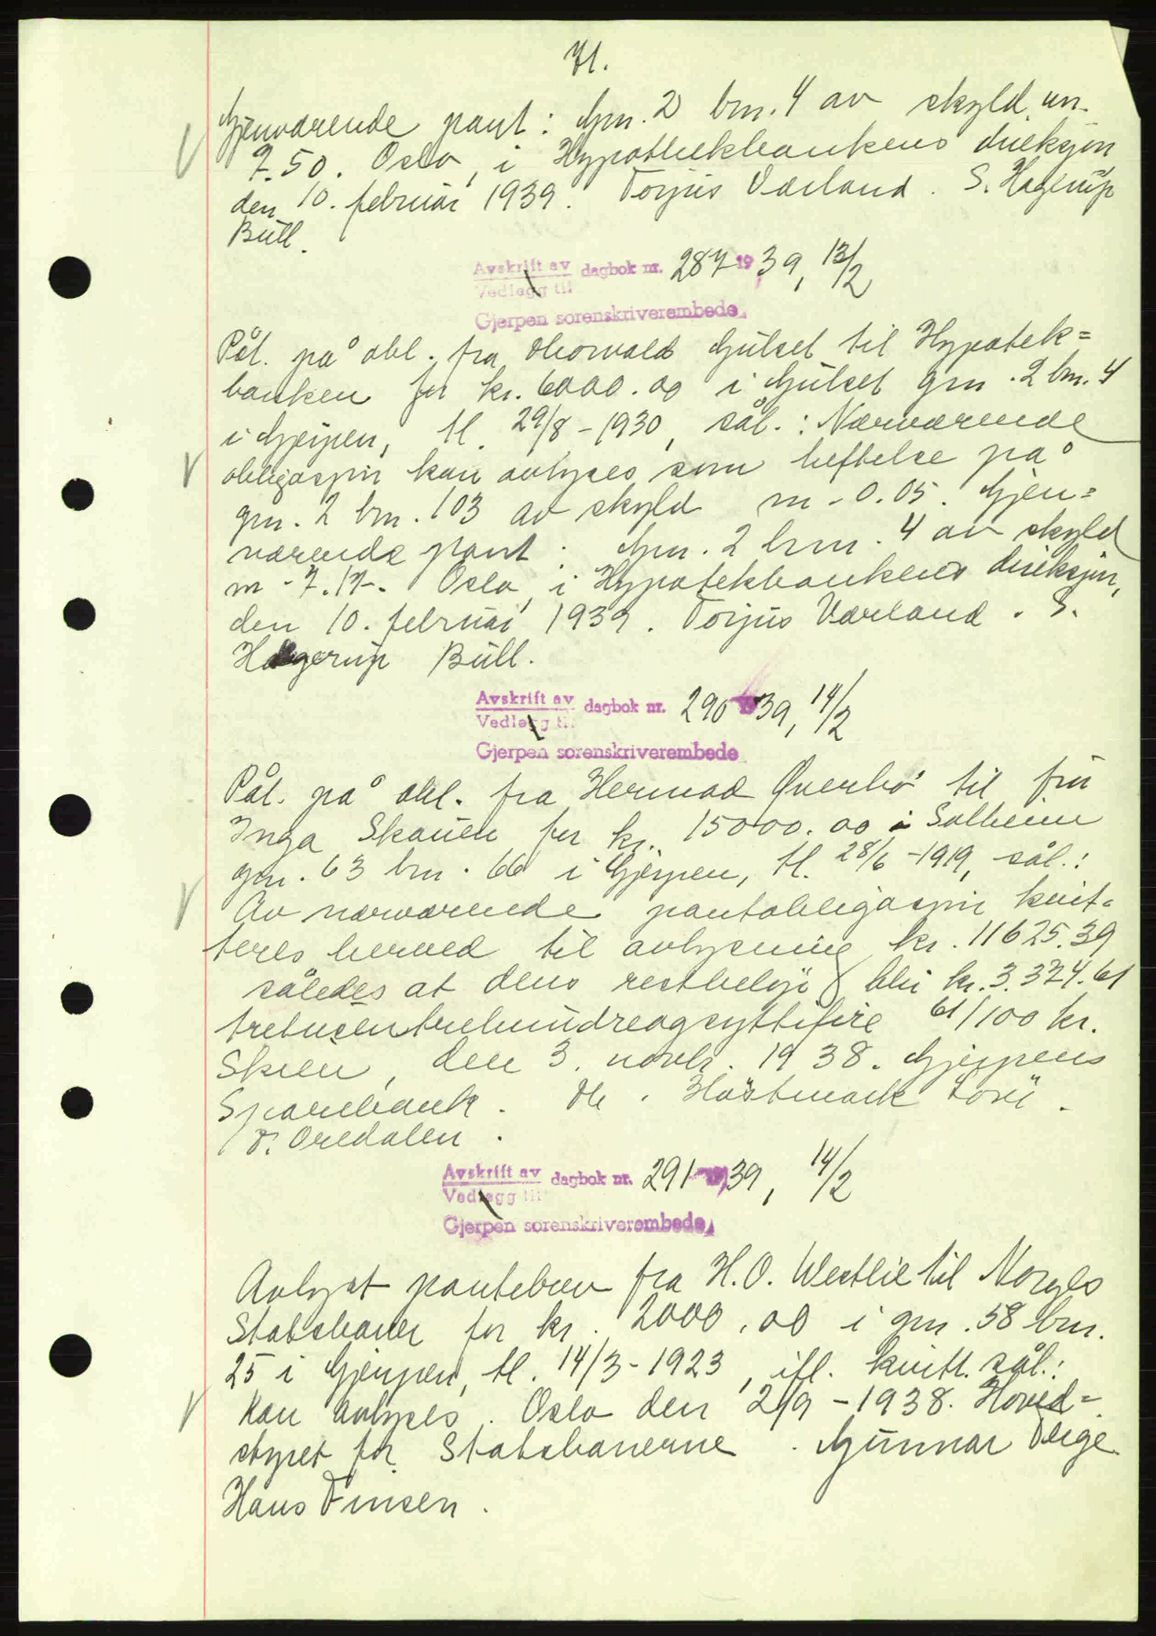 71.
Gjenværende pant: Gnr. 2 bnr. 4 av skyld m.
7.50. Oslo, i Hypothekbankens direksjon
den 10. februar 1939. Torjus Værland. S. Hagerup
Bull.
Avskrift av dagbok nr. 287 1939, 13/2
Vedlegg til
Gjerpen sorenskriverembede.
Påt. på obl. fra Thorvald Gulset til Hypotek=
banken for kr. 6000.00 i Gulset gnr. 2 bnr. 4
i Gjerpen, tl. 29/8-1930, sål.: Nærværende
obligasjon kan avlyses som heftelse på
gnr. 2 bnr. 103 av skyld m - 0.05. Gjen=
værende pant: Gnr. 2 bnr. 4 av skyld
m - 7.17. Oslo, i Hypotekbankens direksjon,
den 10. februar 1939. Torjus Værland. S.
Hagerup Bull.
Avskrift av dagbok nr. 290 1939, 14/2
Vedlegg til
Gjerpen sorenskriverembede
Påt. på obl. fra Hermod Øverbö til fru
Inga Skauen for kr. 15000.00 i Solheim
gnr. 63 bnr. 66 i Gjerpen, tl. 28/6-1919, sål.:
Av nærværende pantobligasjon kvit=
teres herved til avlysning kr. 11625.39
således at dens restbelöp bli kr. 3.374.61
tretusentrehundreogsyttifire 61/100 kr.
Skien, den 3. novbr. 1938. Gjerpens
Sparebank. Th. Höstmark
Oredalen.
Avskrift av dagbok nr. 291 1939, 14/2
Vedlegg til
Gjerpen sorenskriverembede.
Avlyst pantebrev fra H.O. Westlie til Norges
Statsbaner for kr. 2000.00 i gnr. 58 bnr.
25 i Gjerpen, tl. 14/3-1923, ifl. kvitt. sål.:
Kan avlyses. Oslo den 2/9-1938. Hoved=
styret for Statsbanerne. Gunnar
Hans Finsen.